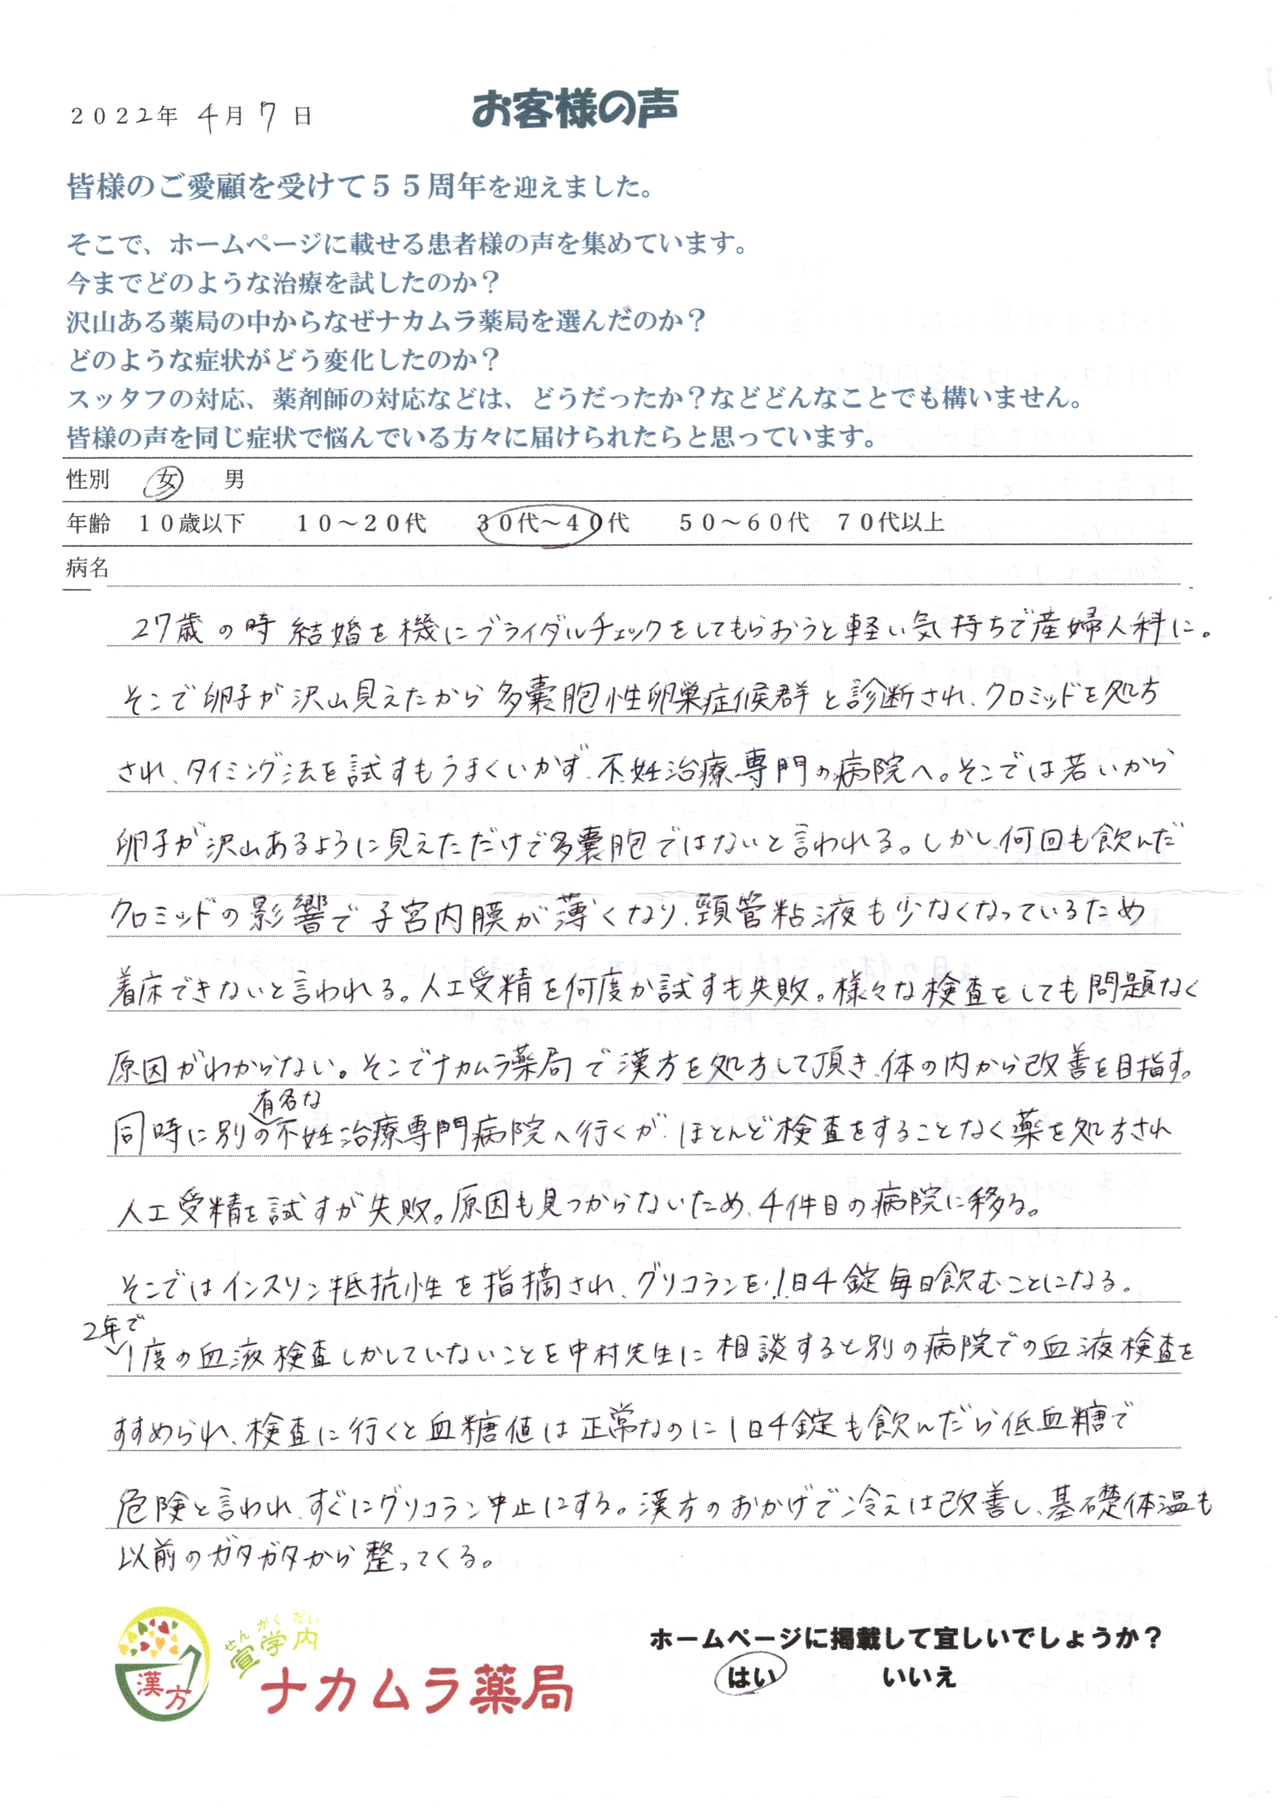 2022年 4月 7日
お客様の声
皆様のご愛顧を受けて55周年を迎えました。
そこで、ホームページに載せる患者様の声を集めています。
今までどのような治療を試したのか？
沢山ある薬局の中からなぜナカムラ薬局を選んだのか？
どのような症状がどう変化したのか？
スッタフの対応、薬剤師の対応などは、どうだったか？などどんなことでも構いません。
皆様の声を同じ症状で悩んでいる方々に届けられたらと思っています。
性別 女 男
年齢 10歳以下 10～20代 30代～40代 50～60代 70代以上
病名
27歳の時 結婚を機にブライダルチェックをしてもらおうと軽い気持ちで産婦人科に。
そこで卵子が沢山見えたから多嚢胞性卵巣症候群と診断され、クロミッドを処方
され、タイミング法を試すもうまくいかず、不妊治療専門の病院へ。そこでは若いから
卵子が沢山あるように見えただけで多嚢胞ではないと言われる。しかし、何回も飲んだ
クロミッドの影響で子宮内膜が薄くなり、頸管粘液も少なくなっているため
着床できないと言われる。人工受精を何度か試すも失敗。様々な検査をしても問題なく
原因がわからない。そこでナカムラ薬局で漢方を処方して頂き、体の内から改善を目指す。
同時に別の有名な不妊治療専門病院へ行くが、ほとんど検査をすることなく薬を処方され
人工受精を試すが失敗。原因も見つからないため、4件目の病院に移る。
そこではインスリン抵抗性を指摘され、グリコランを1日4錠毎日飲むことになる。
2年で1度の血液検査しかしていないことを中村先生に相談すると別の病院での血液検査を
すすめられ、検査に行くと血糖値は正常なのに1日4錠も飲んだら低血糖で
危険と言われ、すぐにグリコラン中止にする。漢方のおかげで冷えは改善し、基礎体温も
以前のガタガタから整ってくる。
漢方
せんがくだい
萱学内
ナカムラ薬局
ホームページに掲載して宜しいでしょうか？
はい いいえ